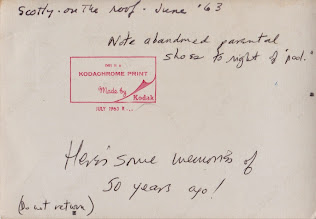 Scotty - on the roof - June '63
Note abandoned parental
shoes to right of "pool."
THIS IS A
KODACHROME PRINT
Made by Kodak
JULY 1963
Here's some memories of
50 years ago!
(Do not return)